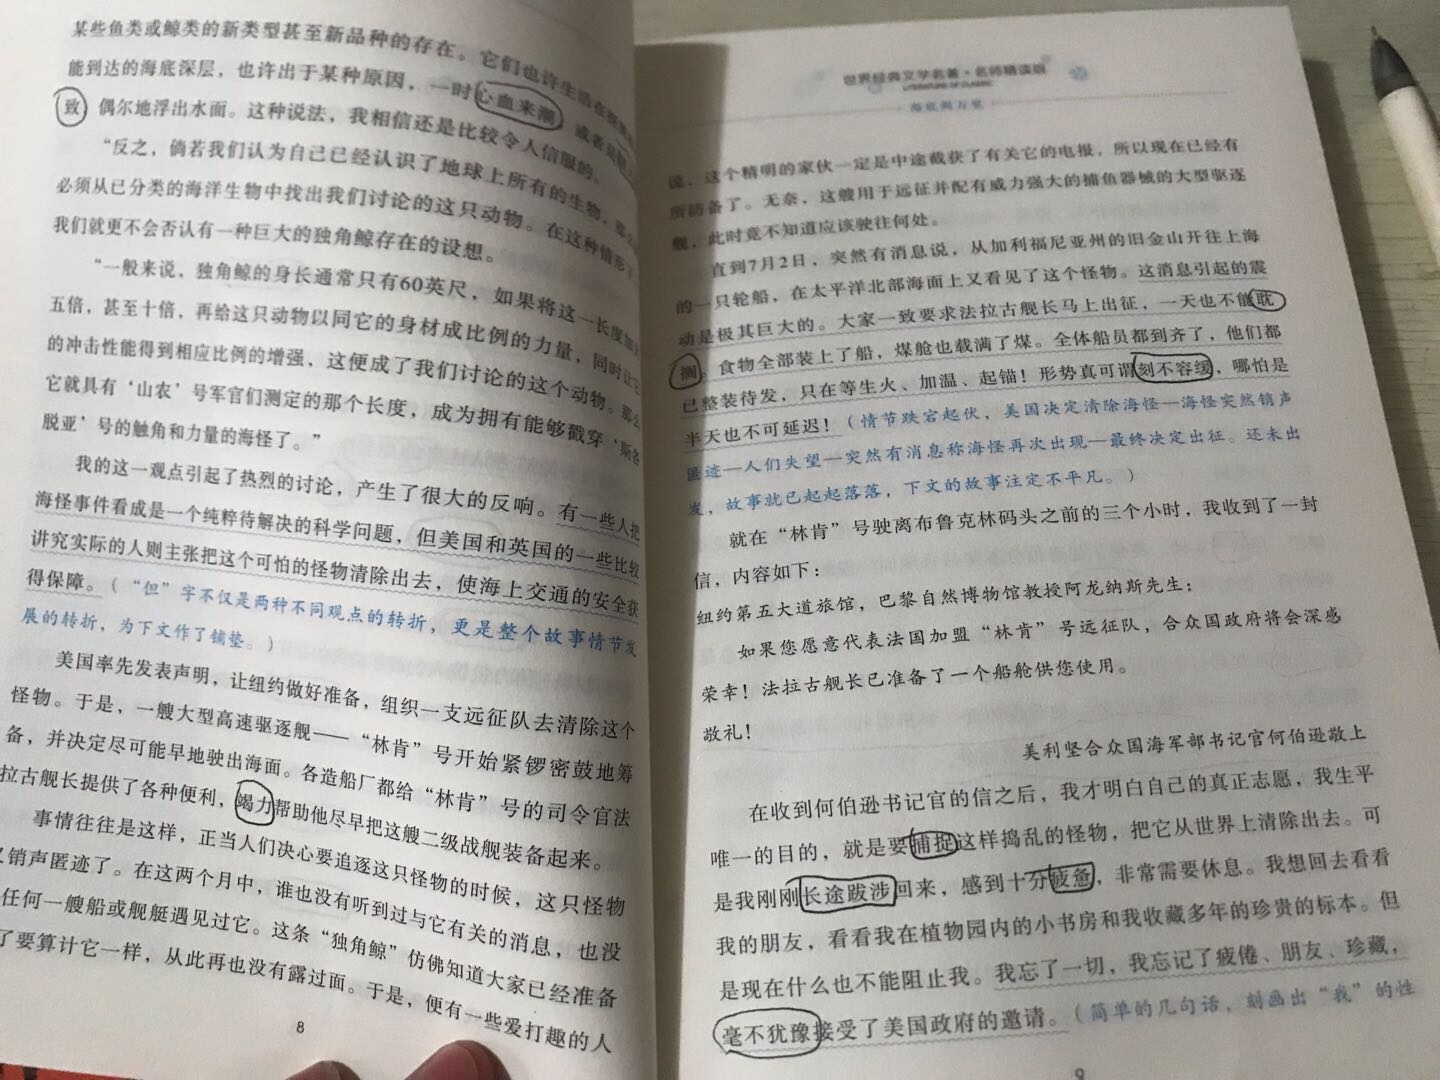 某些鱼类或鲸类的新类型甚至新品种的存在。它们也许生活在探测
能到达的海底深层，也许出于某种原因，一时心血来潮，或者是
致，偶尔地浮出水面。这种说法，我相信还是比较令人信服的。
“反之，倘若我们认为自己已经认识了地球上所有的生物，那么
必须从已分类的海洋生物中找出我们讨论的这只动物。在这种情形下
我们就更不会否认有一种巨大的独角鲸存在的设想。
“一般来说，独角鲸的身长通常只有60英尺，如果将这一长度加大
五倍，甚至十倍，再给这只动物以同它的身材成比例的力量，同时让它
的冲击性能得到相应比例的增强，这便成了我们讨论的这个动物。那么
它就具有‘山农’号军官们测定的那个长度，成为拥有能够戳穿‘斯各
脱亚’号的触角和力量的海怪了。”
我的这一观点引起了热烈的讨论，产生了很大的反响。有一些人把
海怪事件看成是一个纯粹待解决的科学问题，但美国和英国的一些比较
讲究实际的人则主张把这个可怕的怪物清除出去，使海上交通的安全获
得保障。（“但”字不仅是两种不同观点的转折，更是整个故事情节发
展的转折，为下文作了铺垫。）
美国率先发表声明，让纽约做好准备，组织一支远征队去清除这个
怪物。于是，一艘大型高速驱逐舰——“林肯”号开始紧锣密鼓地筹
备，并决定尽可能早地驶出海面。各造船厂都给“林肯”号的司令官法
拉古舰长提供了各种便利，竭力帮助他尽早把这艘二级战舰装备起来。
事情往往是这样，正当人们决心要追逐这只怪物的时候，这只怪物
又销声匿迹了。在这两个月中，谁也没有听到过与它有关的消息，也没
任何一艘船或舰艇遇见过它。这条“独角鲸”仿佛知道大家已经准备
了要算计它一样，从此再也没有露过面。于是，便有一些爱打趣的人
8
世界经典文学名著·名师精读版
LITERATURE OF CLASSIC
海底两万里
说，这个精明的家伙一定是中途截获了有关它的电报，所以现在已经有
所防备了。无奈，这艘用于远征并配有威力强大的捕鱼器械的大型驱逐
舰，此时竟不知道应该驶往何处。
直到7月2日，突然有消息说，从加利福尼亚州的旧金山开往上海
的一只轮船，在太平洋北部海面上又看见了这个怪物。这消息引起的震
动是极其巨大的。大家一致要求法拉古舰长马上出征，一天也不能耽
搁。食物全部装上了船，煤舱也载满了煤。全体船员都到齐了，他们都
已整装待发，只在等生火、加温、起锚！形势真可谓刻不容缓，哪怕是
半天也不可延迟！（情节跌宕起伏，美国决定清除海怪—海怪突然销声
匿迹—人们失望—突然有消息称海怪再次出现—最终决定出征。还未出
发，故事就已起起落落，下文的故事注定不平凡。）
就在“林肯”号驶离布鲁克林码头之前的三个小时，我收到了一封
信，内容如下：
纽约第五大道旅馆，巴黎自然博物馆教授阿龙纳斯先生：
如果您愿意代表法国加盟“林肯”号远征队，合众国政府将会深感
荣幸！法拉古舰长已准备了一个船舱供您使用。
敬礼！
美利坚合众国海军部书记官何伯逊敬上
在收到何伯逊书记官的信之后，我才明白自己的真正志愿，我生平
唯一的目的，就是要捕捉这样捣乱的怪物，把它从世界上清除出去。可
是我刚刚长途跋涉回来，感到十分疲惫，非常需要休息。我想回去看看
我的朋友，看看我在植物园内的小书房和我收藏多年的珍贵的标本。但
是现在什么也不能阻止我。我忘了一切，我忘记了疲倦、朋友、珍藏，
毫不犹豫接受了美国政府的邀请。（简单的几句话，刻画出“我”的性
9